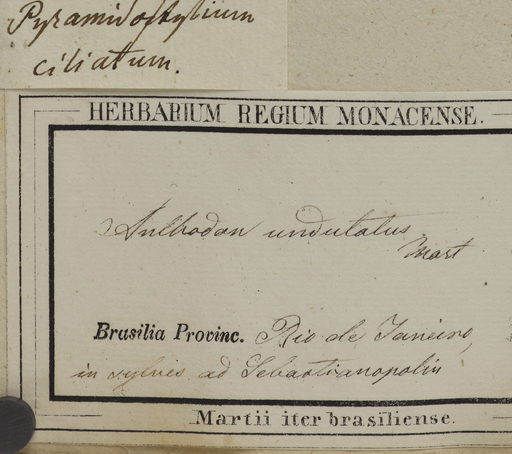 Pyramidostylium
ciliatum.
HERBARIUM REGIUM MONACENSE.
Anthodon undulatus
Mart
Brasilia Provinc. Rio de Janeiro,
in sylvis ad Sebastianopolin
Martii iter brasiliense.